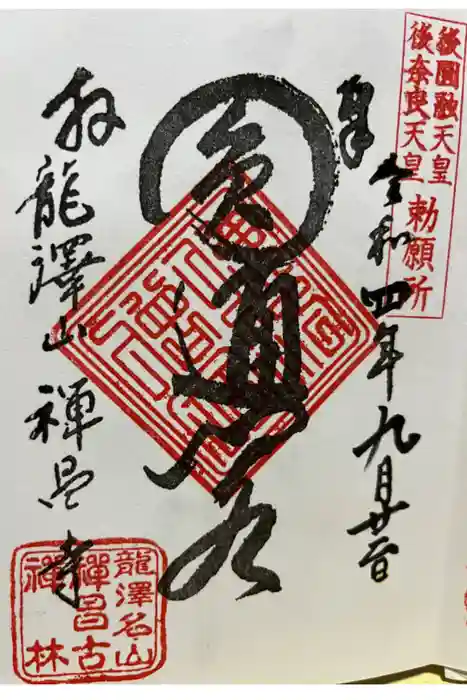 後圓融天皇
後奈良天皇
勅願所
令和四年九月廿
圓通閣
龍澤山禪昌寺
龍澤名山
禪昌古
禪林